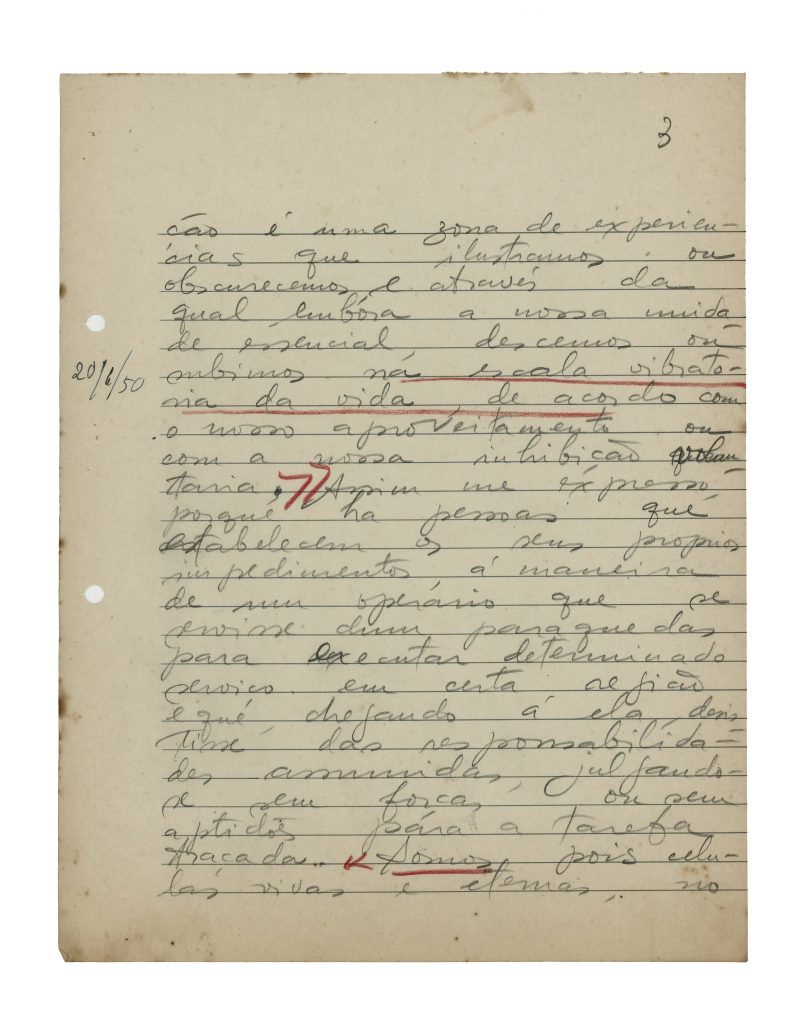 3
ção é uma zona de experien-
cias que ilustramos ou
obscurecemos e através da
qual embóra a nossa unida
de essencial, descemos ou
20/6/50
subimos na escala vibrato-
ria da vida, de acordo com
o nosso aproveitamento ou
com a nossa inhibição volun
taria, Assim me expresso
porque ha pessoas que
estabelecem os seus proprios
impedimentos, á maneira
de um operário que se
servisse dum paraquedas
para executar determinado
serviço em certa região
e que, chegando á ela, desis
tisse das responsabilida-
des assumidas, julgando-
se sem forças, ou sem
aptidões pára a tarefa
traçada.. Somos pois celu-
las vivas e eternas, no